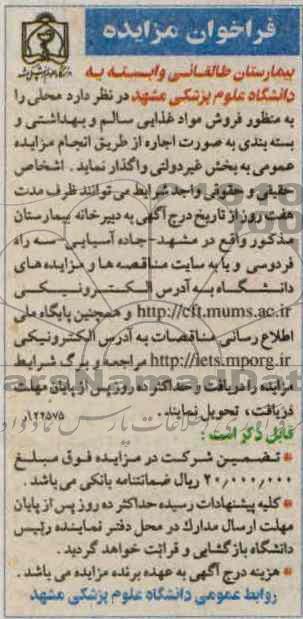 فراخوان مزایده
بیمارستان طالقانی وابسته به
دانشگاه علوم پزشکی مشهد در نظر دارد محلی را
به منظور فروش مواد غذایی سالم و بهداشتی و
بسته بندی به صورت اجاره از طریق انجام مزایده
عمومی به بخش غیردولتی واگذار نماید . اشخاص
حقیقی و حقوقی واجد شرایط می توانند ظرف مدت
هفت روز از تاریخ درج آگهی به دبیرخانه بیمارستان
مذکور واقع در مشهد-جاده آسیایی-سه راه
فردوسی و یا به سایت مناقصه ها و مزایده های
دانشگاه به آدرس الکترونیکی
http://cft.mums.ac.ir و همچنین پایگاه ملی
اطلاع رسانی مناقصات به آدرس الکترونیکی
http://iets.mporg.ir مراجعه و برگ شرایط
مزایده را دریافت و حداکثر ده روز پس از پایان مهلت
دریافت ، تحویل نمایند . ۱۲۲۵۷۵/م
قابل ذکر است :
* تضمین شرکت در مزایده فوق مبلغ
۲۰,۰۰۰,۰۰۰ ریال ضمانتنامه بانکی می باشد .
* کلیه پیشنهادات رسیده حداکثر ده روز پس از پایان
مهلت ارسال مدارک در محل دفتر نماینده رئیس
دانشگاه بازگشایی و قرائت خواهد گردید .
* هزینه درج آگهی به عهده برنده مزایده می باشد .
روابط عمومی دانشگاه علوم پزشکی مشهد